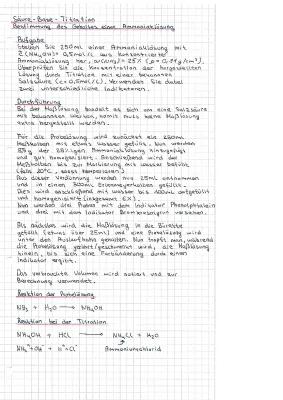 Säure-Base-Titration
Bestimmung des Gehaltes einer Ammoniaklösung
Aufgabe
Stellen Sie 250ml einer Ammoniaklösung mit
c(NH4OH) = 0,5mol/L aus konzentrierter
Ammoniaklösung her
Überprüfen Sie die Konzentration der hergestellten
Lösung durch Titration mit einer bekannten
Salzsäure (c = 0,5mol/L). Verwenden Sie dabei
zwei unterschiedliche Indikatoren.
Durchführung
Bei der Maßlösung handelt es sich um Salzsäure
mit bekannten Werten, somit muss keine Maßlösung
extra hergestellt werden.
Für die Probelösung wird zunächst ein 250ml
Meßkolben mit etwas Wasser gefüllt. Nun werden
der 25%igen Ammoniaklösung hinzugefügt
und gut homogenisiert. Anschließend wird der
Meßkolben bis zur Markierung mit Wasser befüllt
(falls 20°C, sonst temperieren)
Aus dieser Verdünnung werden nun 25ml entnommen
und in einen 300ml Erlenmeyerkolben gefüllt.
Dies wird anschließend mit Wasser bis 100ml aufgefüllt
und homogenisiert (insgesamt 6x).
Nun werden drei Proben mit dem Indikator Phenolphthalein
und drei mit dem Indikator Bromkresolgrün versehen.
Als nächstes wird die Maßlösung in die Bürette
gefüllt (etwas über 25ml) und eine Probelösung wird
unter den Auslaufhahn gehalten. Nun tropft man, während
die Probelösung gerührt/geschwenkt wird, die Maßlösung
hinein, bis sich eine Farbänderung durch einen
Indikator ergibt.
Das verbrauchte Volumen wird notiert und zur
Berechnung verwendet.
Reaktion der Probelösung
NH3 + H2O → NH4OH
Reaktion bei der Titration
NH4OH + HCl → NH4Cl + H2O
NH4+ + OH- + H+ + Cl-
Ammoniumchlorid